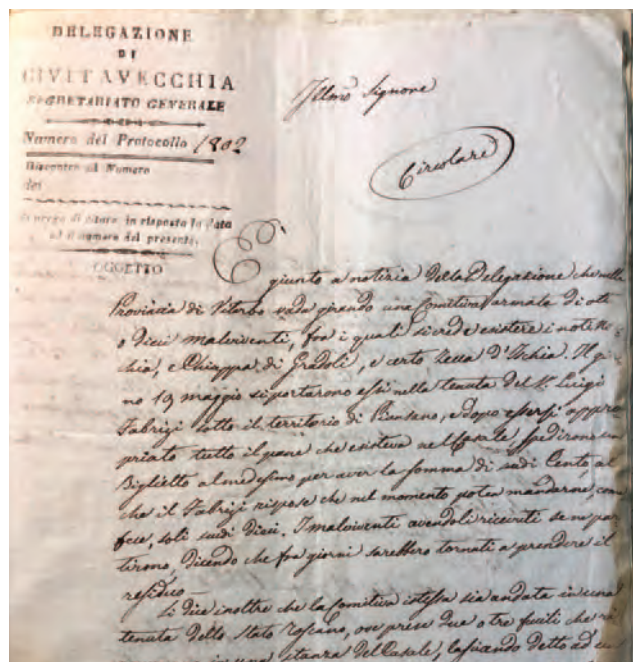 DELEGAZIONE
DI
CIVITAVECCHIA
SEGRETARIATO GENERALE
Numero del Protocollo 1802
Riscontro al Numero
del
Si prega di citare in risposta la data
ed il numero del presente.
OGGETTO
Illmo Signore
Circolare
È giunto a notizia della Delegazione che nella
Provincia di Viterbo vada girando una Comitiva armata di otto
o dieci malviventi, fra i quali si crede esistere i noti
chia, e Chiappa di Gradoli, e certo Zecca d'Ischia. Il gi
no 19 maggio si portarono essi nella tenuta del Sr. Luigi
Fabrizi sotto il territorio di Piansano, e dopo essersi appro
priato tutto il pane che esisteva nel Casale, spedirono un
Biglietto al medesimo per aver la somma di scudi Cento, al
che il Fabrizi rispose che nel momento potea mandarne, come
fece, soli scudi Dieci. I malviventi avendoli ricevuti se ne par
tirono, dicendo che fra giorni sarebbero tornati a prendere il
residuo—
Si dice inoltre che la Comitiva istessa sia andata in una
tenuta dello Stato Toscano, ove prese due o tre fucili che
in una stanza del Casale, lasciando detto ad un